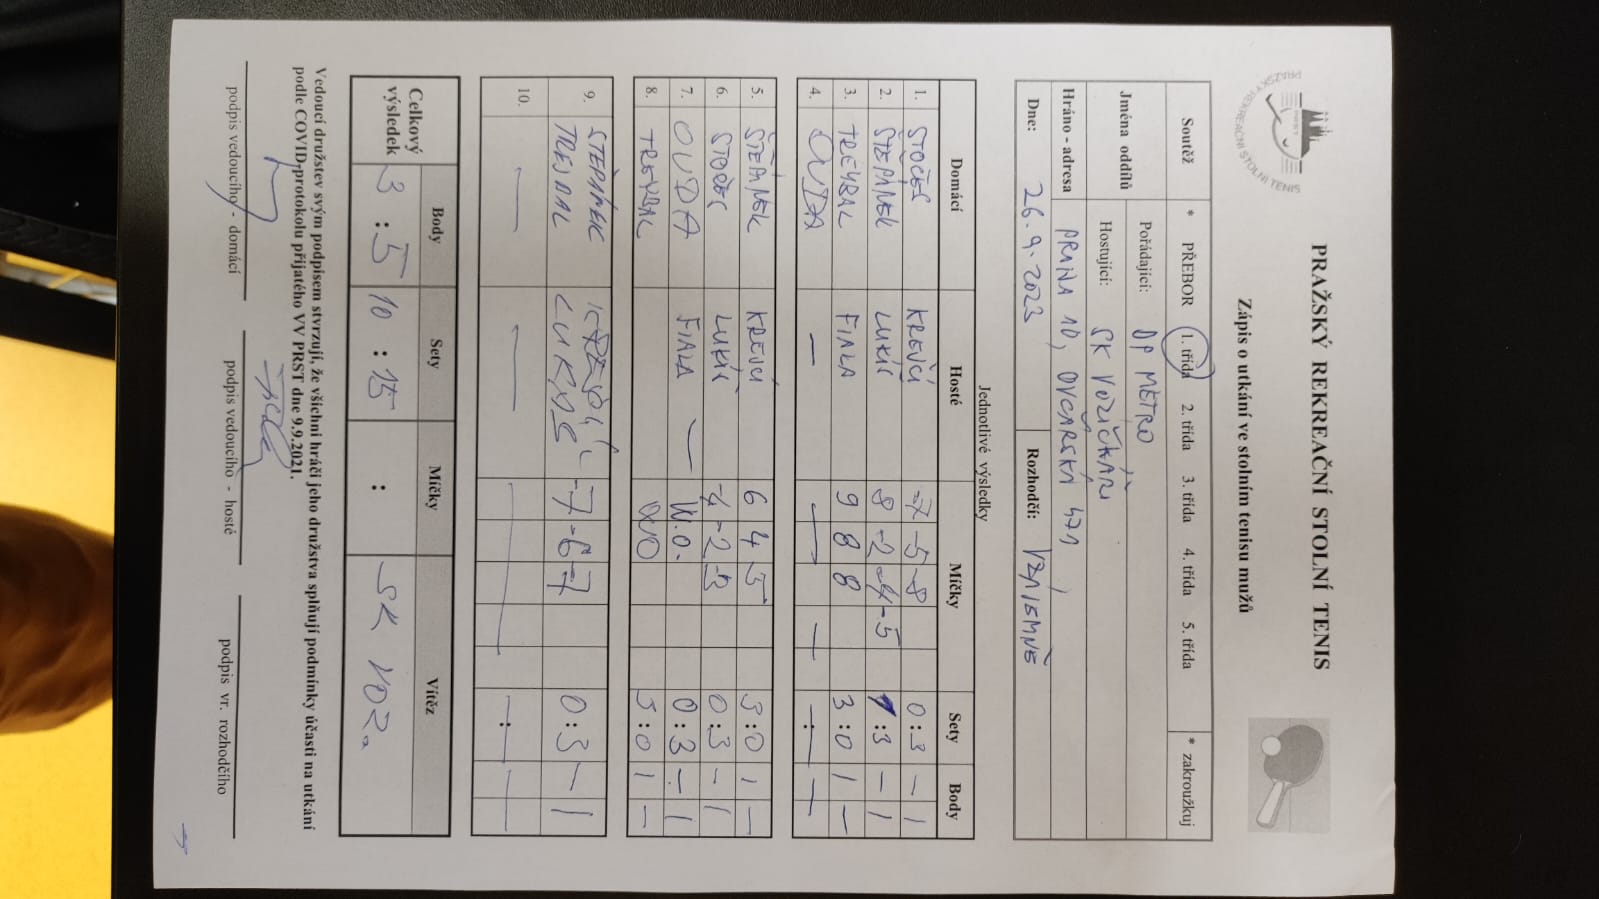 PRAŽSKÝ REKREAČNÍ STOLNÍ TENIS
PRAŽSKÝ REKREAČNÍ STOLNÍ TENIS
Zápis o utkání ve stolním tenisu mužů
Soutěž * PŘEBOR 1. třída 2. třída 3. třída 4. třída 5. třída * zakroužkuj
Jména oddílů Pořádající: DP METRO
Hostující: SK VOZÍČKÁŘI
Hráno - adresa PRAHA 10, OVČÁRSKÁ 471
Dne: 26.9.2023 Rozhodčí: VZÁJEMNĚ
Jednotlivé výsledky
Domácí Hosté Míčky Sety Body
1. STOČES KREJČÍ -7 -5 -8 0:3 - 1
2. ŠTĚPÁNEK LUKÁČ 8 -2 -4 -5 1:3 - 1
3. TREYBAL FIALA 9 8 8 3:0 1 -
4. OUDA - - - : -
5. ŠTĚPÁNEK KREJČÍ 6 4 5 3:0 1 -
6. STOČES LUKÁČ -4 -2 -3 0:3 - 1
7. OUDA FIALA W.O. 0:3 - 1
8. TREYBAL - WO 3:0 1 -
9. ŠTĚPÁNEK KREJČÍ
TREYBAL LUKÁČ -7 -6 -7 0:3 - 1
10. - - - : -
Celkový výsledek Body Sety Míčky Vítěz
3 : 5 10 : 15 : SK VOZ.
Vedoucí družstev svým podpisem stvrzují, že všichni hráči jeho družstva splňují podmínky účasti na utkání
podle COVID-protokolu přijatého VV PRST dne 9.9.2021.
podpis vedoucího - domácí podpis vedoucího - hosté podpis vr. rozhodčího